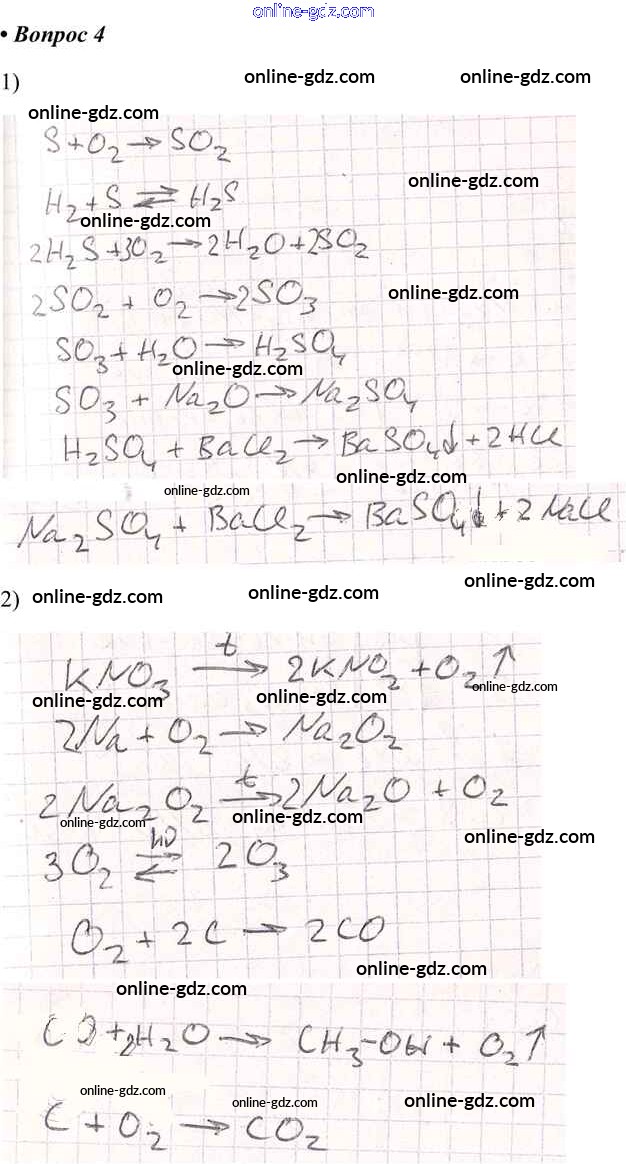 online-gdz.com
• Вопрос 4
1)
online-gdz.com online-gdz.com
online-gdz.com
S + O₂ → SO₂
online-gdz.com
H₂ + S ⇄ H₂S
online-gdz.com
2H₂S + 3O₂ → 2H₂O + 2SO₂
online-gdz.com
2SO₂ + O₂ → 2SO₃
SO₃ + H₂O → H₂SO₄
online-gdz.com
SO₃ + Na₂O → Na₂SO₄
H₂SO₄ + BaCl₂ → BaSO₄↓ + 2HCl
online-gdz.com
online-gdz.com
Na₂SO₄ + BaCl₂ → BaSO₄↓ + 2NaCl
online-gdz.com
2) online-gdz.com online-gdz.com
t
KNO₃ → 2KNO₂ + O₂↑
online-gdz.com
online-gdz.com online-gdz.com
2Na + O₂ → Na₂O₂
t
2Na₂O₂ → 2Na₂O + O₂
online-gdz.com online-gdz.com
online-gdz.com
3O₂ ⇄ 2O₃
O₂ + 2C → 2CO
online-gdz.com
online-gdz.com
CO + 2H₂O → CH₃-OH + O₂↑
online-gdz.com online-gdz.com online-gdz.com
C + O₂ → CO₂